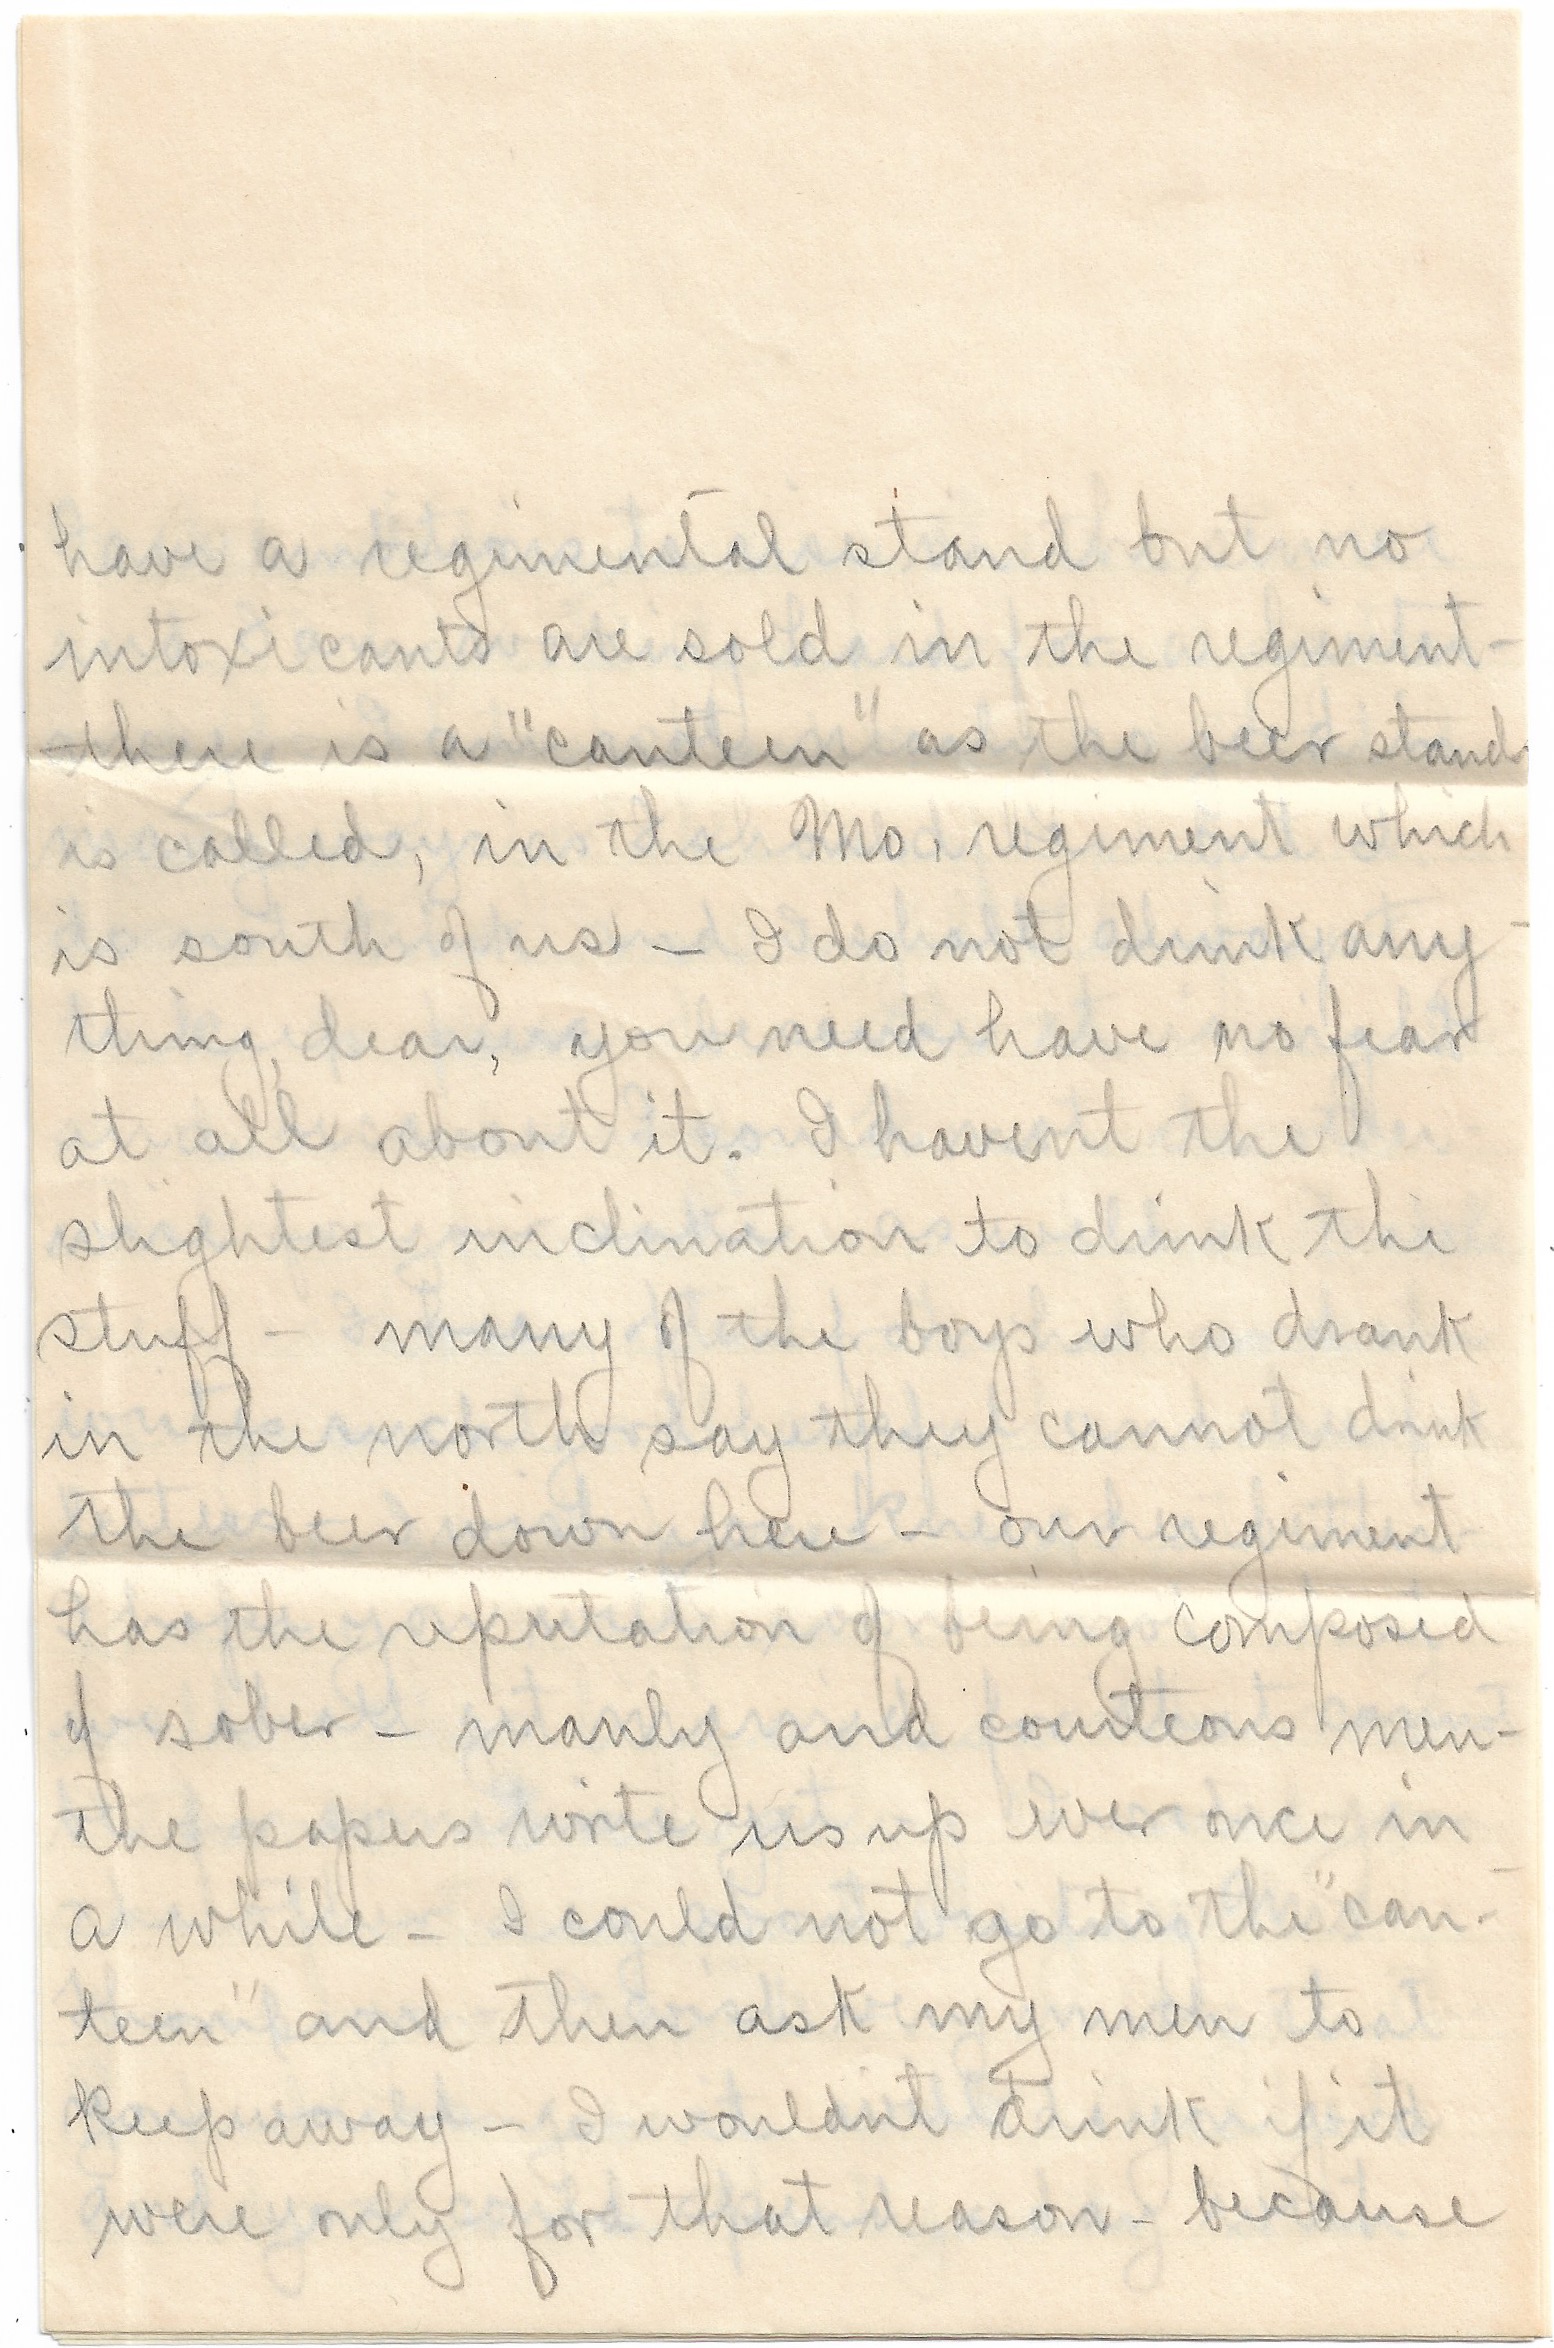 have a regimental stand but no
intoxicants are sold in the regiment -
there is a "canteen" as the beer stand
is called, in the Mo. regiment which
is south of us - I do not drink any-
thing, dear, you need have no fear
at all about it. I havent the
slightest inclination to drink the
stuff - many of the boys who drank
in the north say they cannot drink
the beer down here - our regiment
has the reputation of being composed
of sober - manly and courteous men -
the papers write us up ever once in
a while - I could not go to the "can-
teen" and then ask my men to
keep away - I wouldnt drink if it
were only for that reason - because